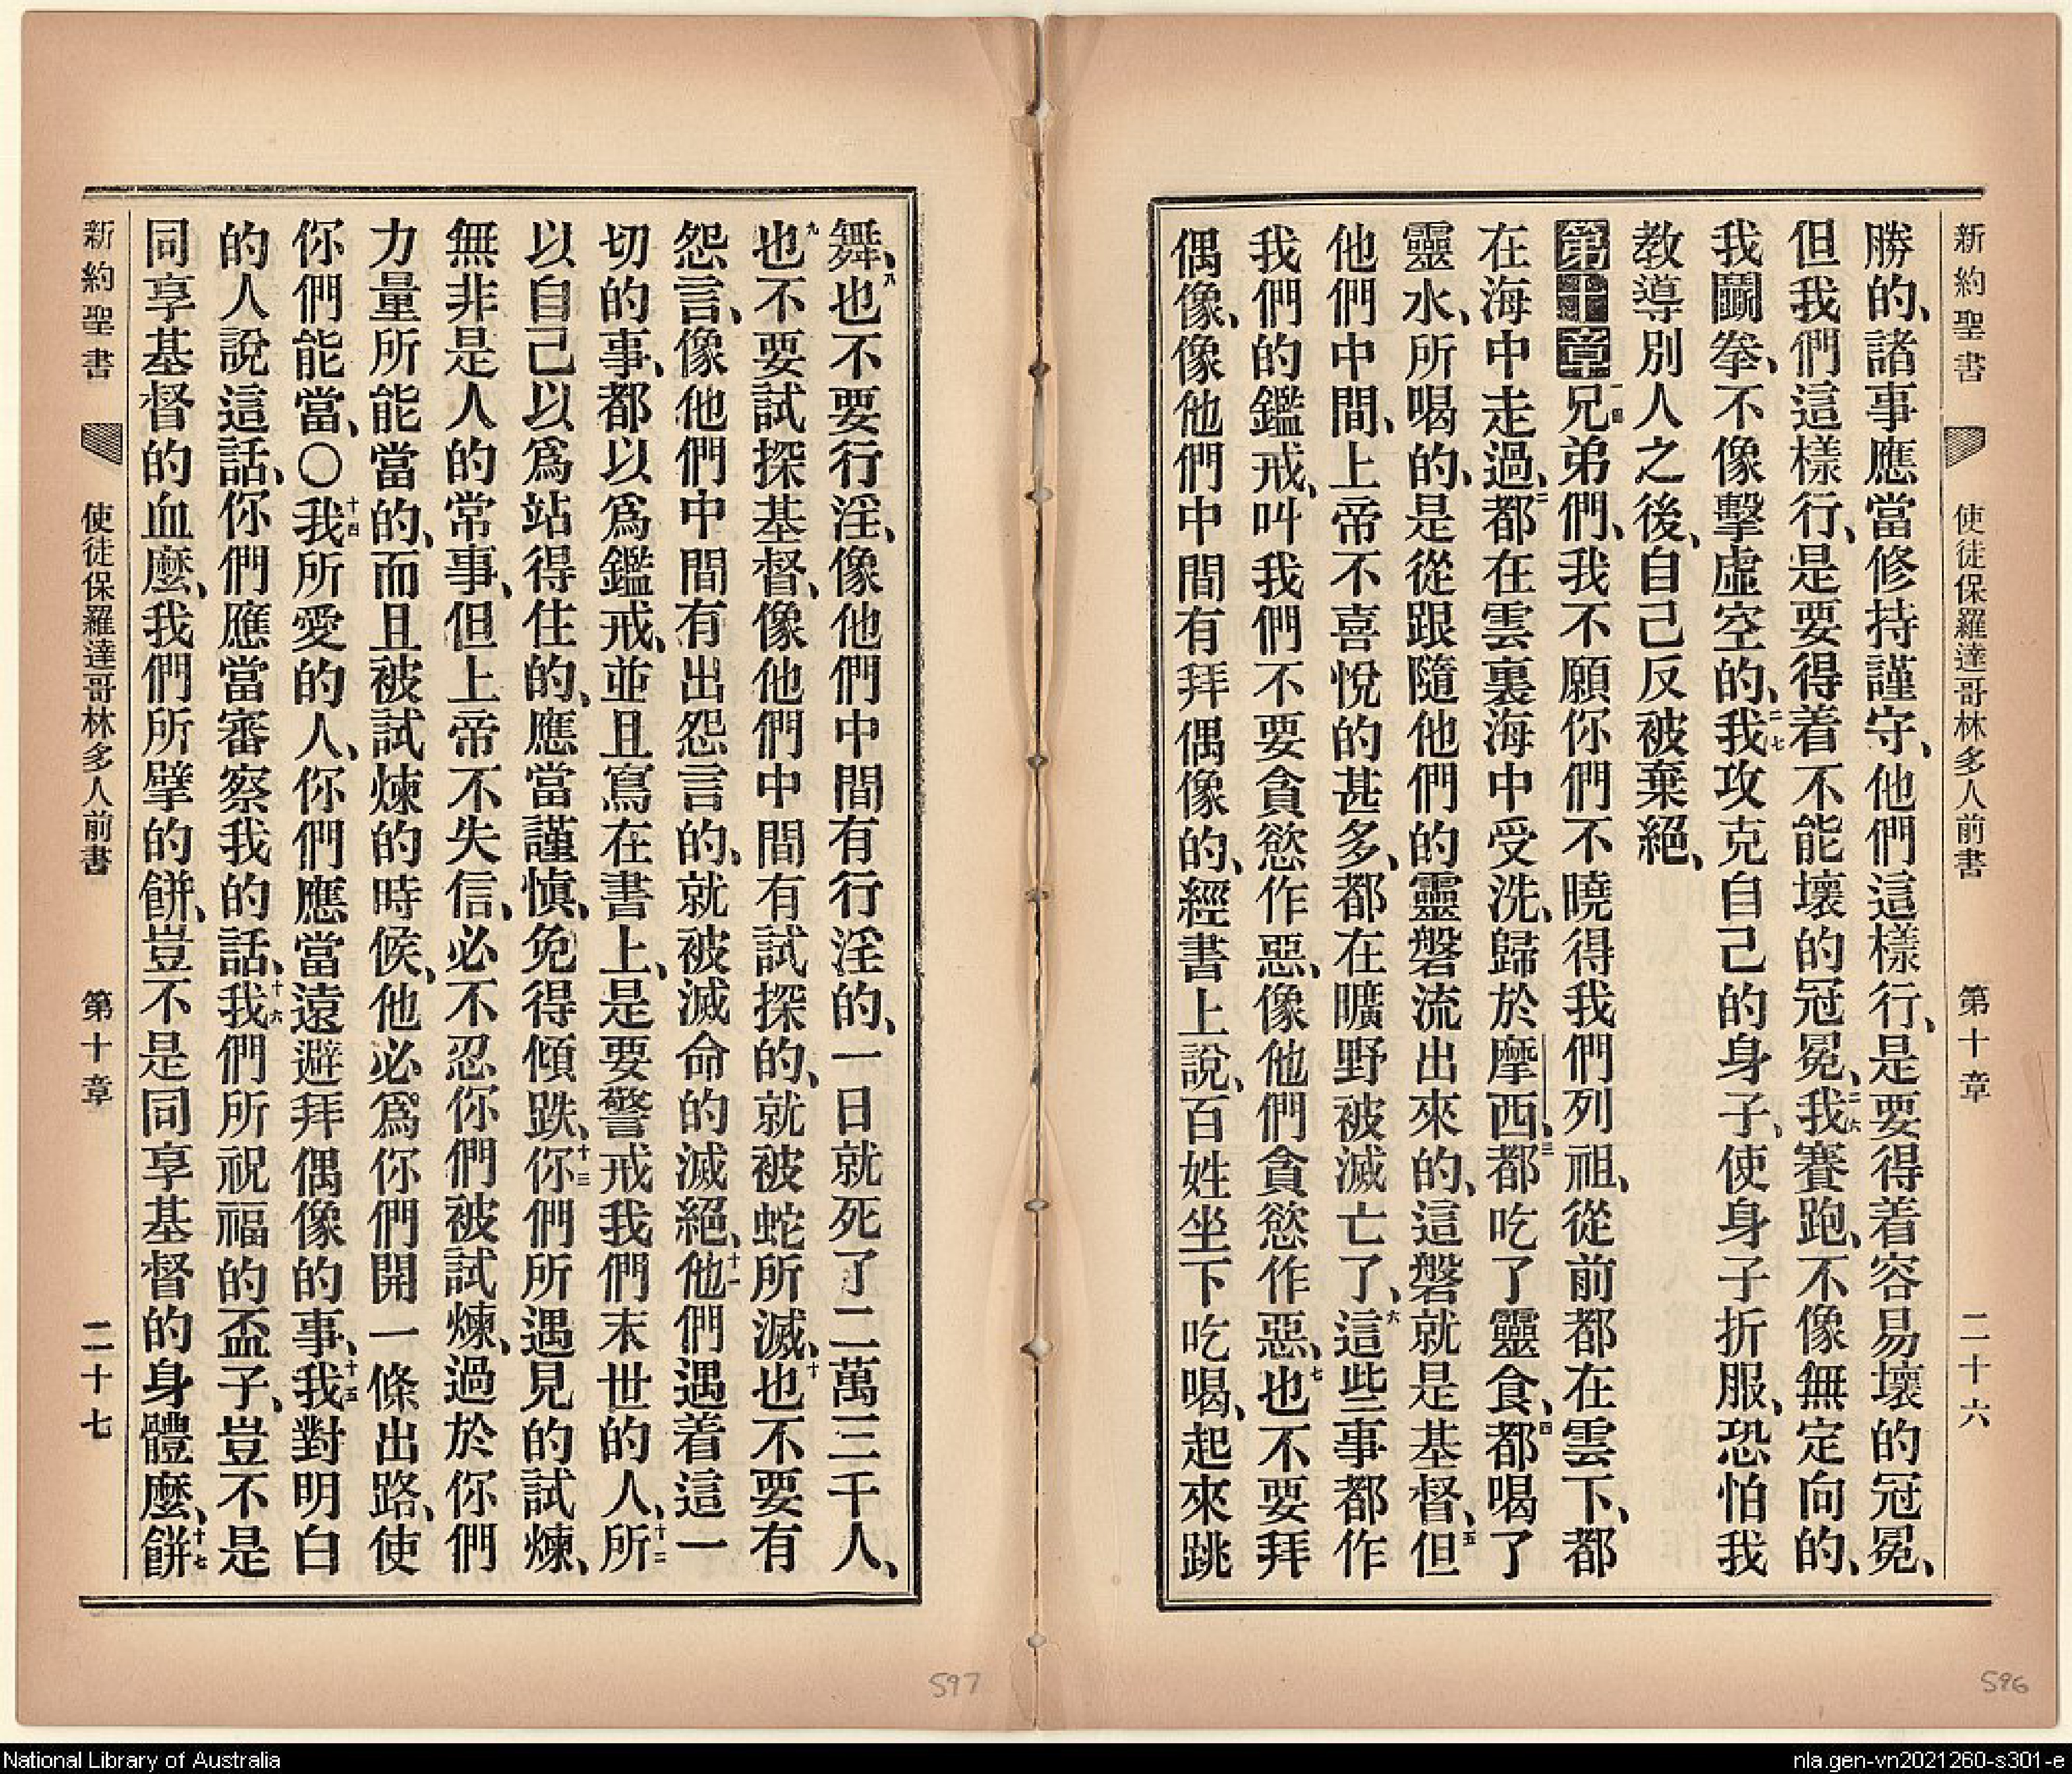 新約聖書 使徒保羅達哥林多人前書 第十章 二十六
勝的、諸事應當修持謹守、他們這樣行、是要得着容易壞的冠冕、
但我們這樣行、是要得着不能壞的冠冕、二六我賽跑、不像無定向的、
我鬭拳、不像擊虛空的、二七我攻克自己的身子、使身子折服、恐怕我
教導別人之後、自己反被棄絕、
第十章 一兄弟們、我不願你們不曉得我們列祖、從前都在雲下、都
在海中走過、二都在雲裏海中受洗、歸於摩西、三都吃了靈食、四都喝了
靈水、所喝的、是從跟隨他們的靈磐流出來的、這磐就是基督、五但
他們中間、上帝不喜悅的甚多、都在曠野被滅亡了、六這些事都作
我們的鑑戒、叫我們不要貪慾作惡、像他們貪慾作惡、七也不要拜
偶像、像他們中間有拜偶像的、經書上說、百姓坐下吃喝、起來跳
舞、八也不要行淫、像他們中間有行淫的、一日就死了二萬三千人、
九也不要試探基督、像他們中間有試探的、就被蛇所滅、十也不要有
怨言、像他們中間有出怨言的、就被滅命的滅絕、十一他們遇着這一
切的事、都以爲鑑戒、並且寫在書上、是要警戒我們末世的人、十二所
以自己以爲站得住的、應當謹慎、免得傾跌、十三你們所遇見的試煉、
無非是人的常事、但上帝不失信、必不忍你們被試煉、過於你們
力量所能當的、而且被試煉的時候、他必爲你們開一條出路、使
你們能當、〇十四我所愛的人、你們應當遠避拜偶像的事、十五我對明白
的人說這話、你們應當審察我的話、十六我們所祝福的盃子、豈不是
同享基督的血麼、我們所擘的餅、豈不是同享基督的身體麼、十七餅
新約聖書 使徒保羅達哥林多人前書 第十章 二十七
597
596
National Library of Australia
nla.gen-vn2021260-s301-e